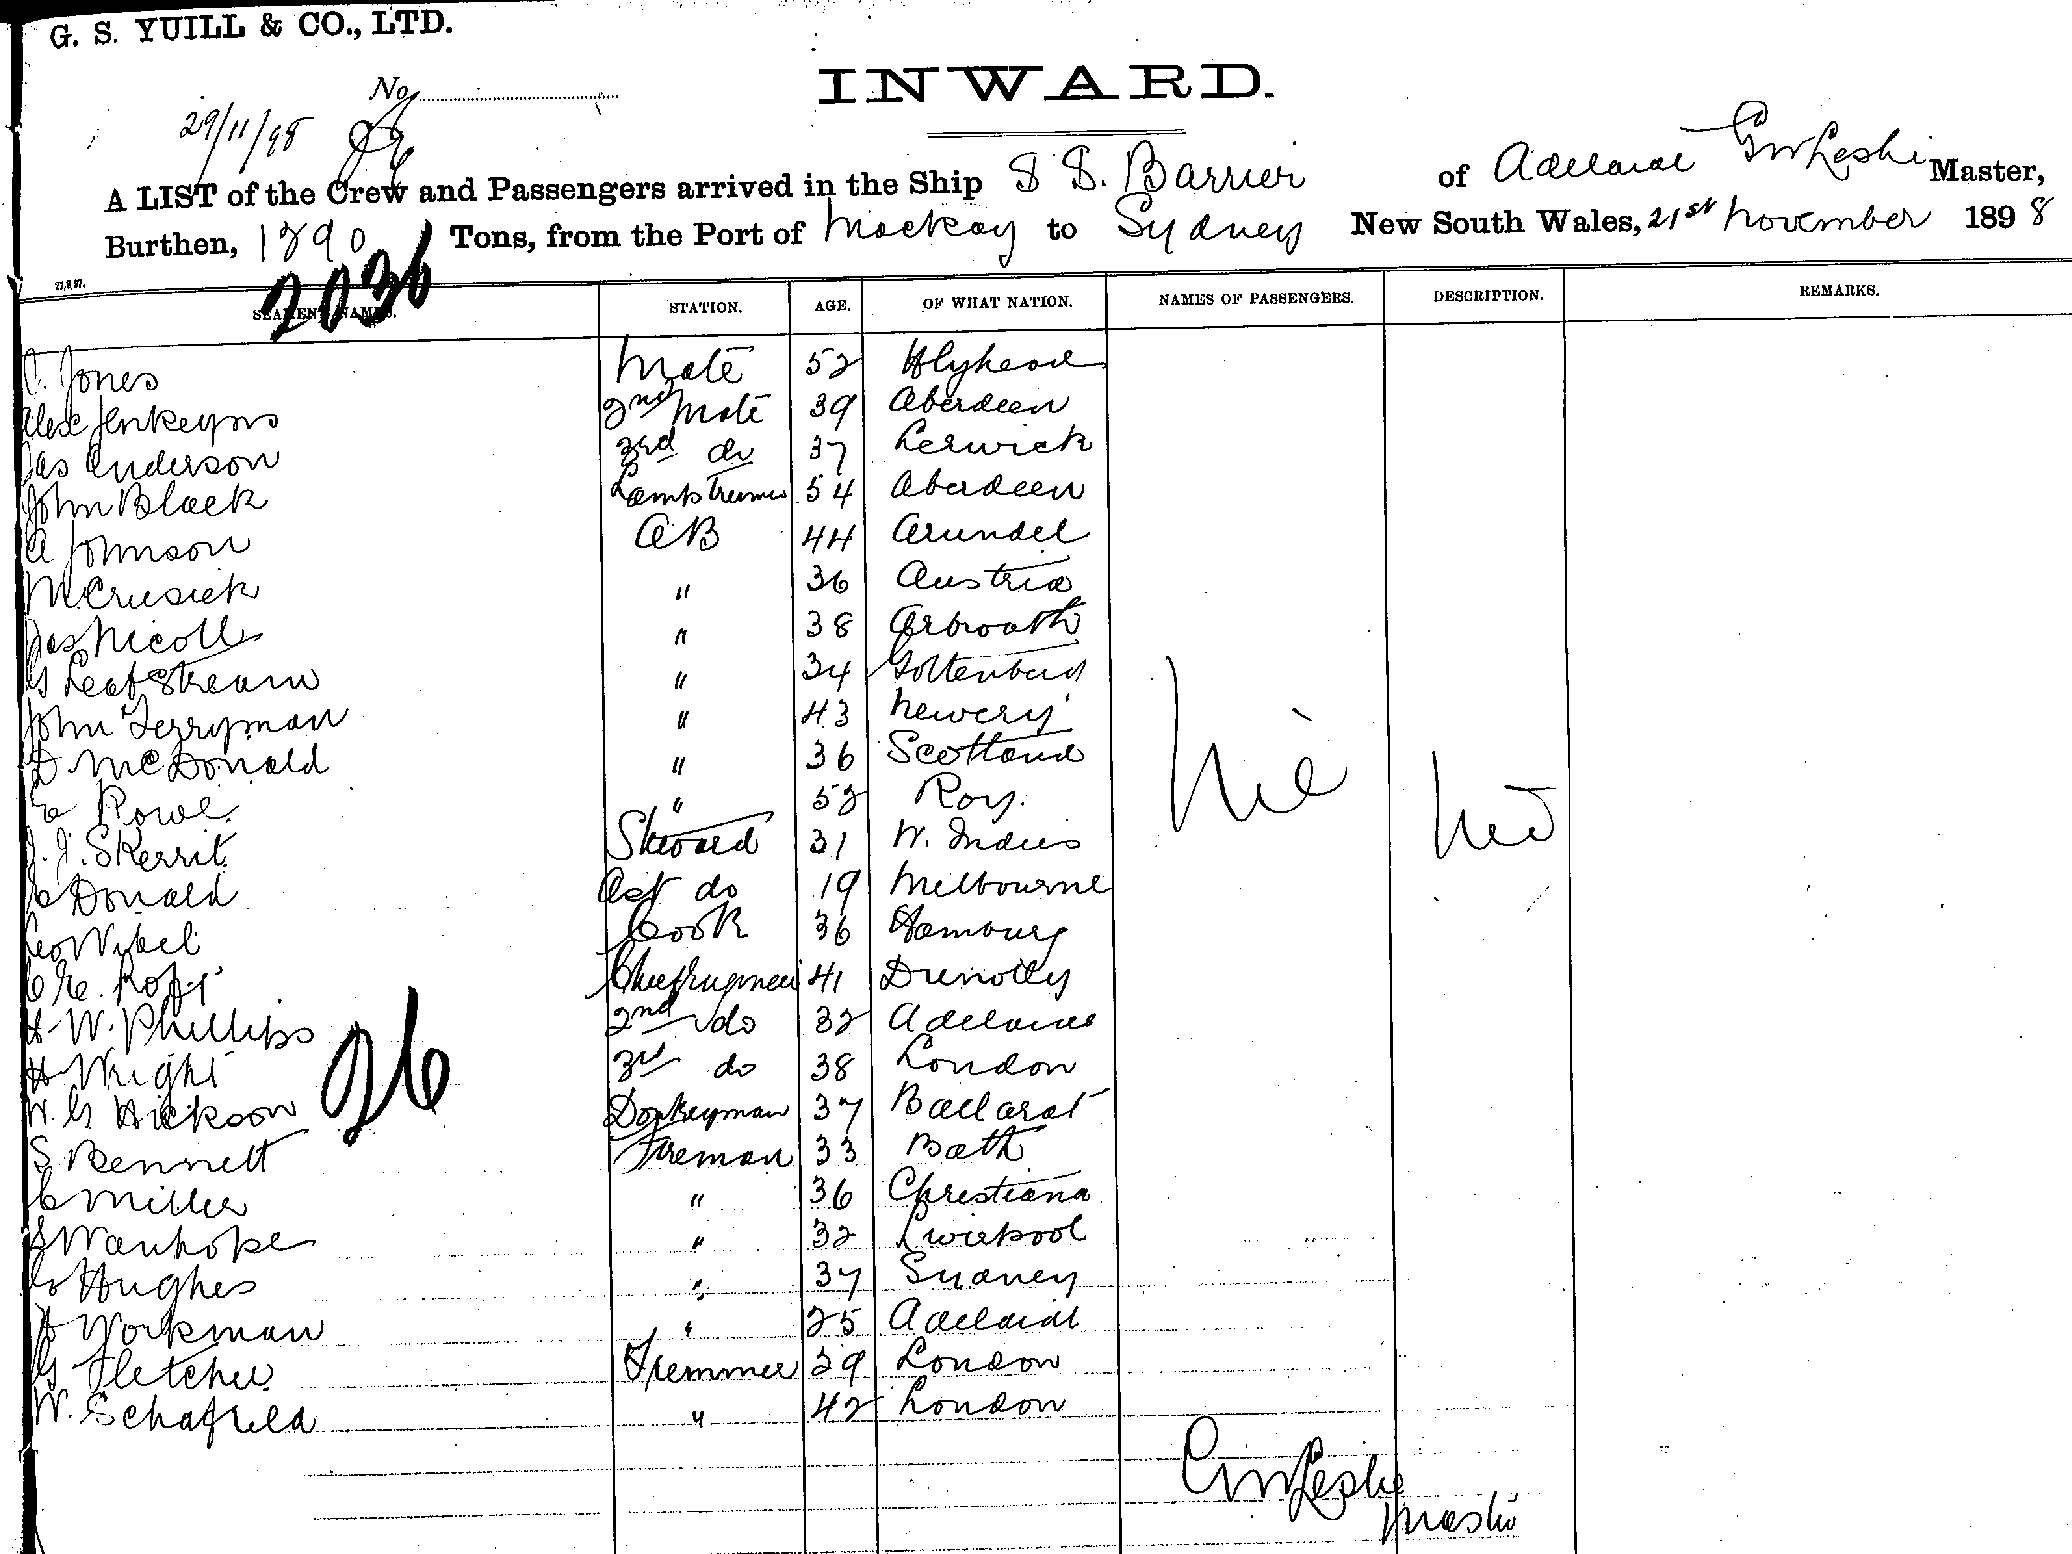 G. S. YUILL & CO., LTD.
No.
INWARD.
29/11/98
A LIST of the Crew and Passengers arrived in the Ship S S. Barrier of Adelaide Leslie Master,
Burthen, 1890 Tons, from the Port of Mackay to Sydney New South Wales, 21st November 1898
2036
SEAMEN'S NAMES. STATION. AGE. OF WHAT NATION. NAMES OF PASSENGERS. DESCRIPTION. REMARKS.
Jones Mate 52 Holyhead
Alex Jenkeyns 2nd Mate 39 Aberdeen
Jas Anderson 3rd do 37 Lerwick
John Black Lamptrimmer 54 Aberdeen
A Johnson AB 44 Arundel
M Crusick " 36 Austria
Jas Nicoll " 38 Arbroath
G " 34 Gottenburg
John Ferryman " 43 Newery
D McDonald " 36 Scotland
E Rowe " 52
J. J. Skerrit Steward 31 W. Indies
C Donald Ast do 19 Melbourne
Geo Wibel Cook 36 Hamburg
C E. Chief Engineer 41 Dunolly
H W. Phillips 2nd do 32 Adelaide
H Wright 3rd do 38 London
W. G Hickson Donkeyman 37 Ballarat
26
S Bennett Fireman 33 Bath
C Miller " 36 Christiana
" 32 Liverpool
Hughes " 37 Sydney
Workman " 25 Adelaide
G Fletcher Tremmer 39 London
W. Schafield " 42 London
Nil
Nil
Leslie
Master